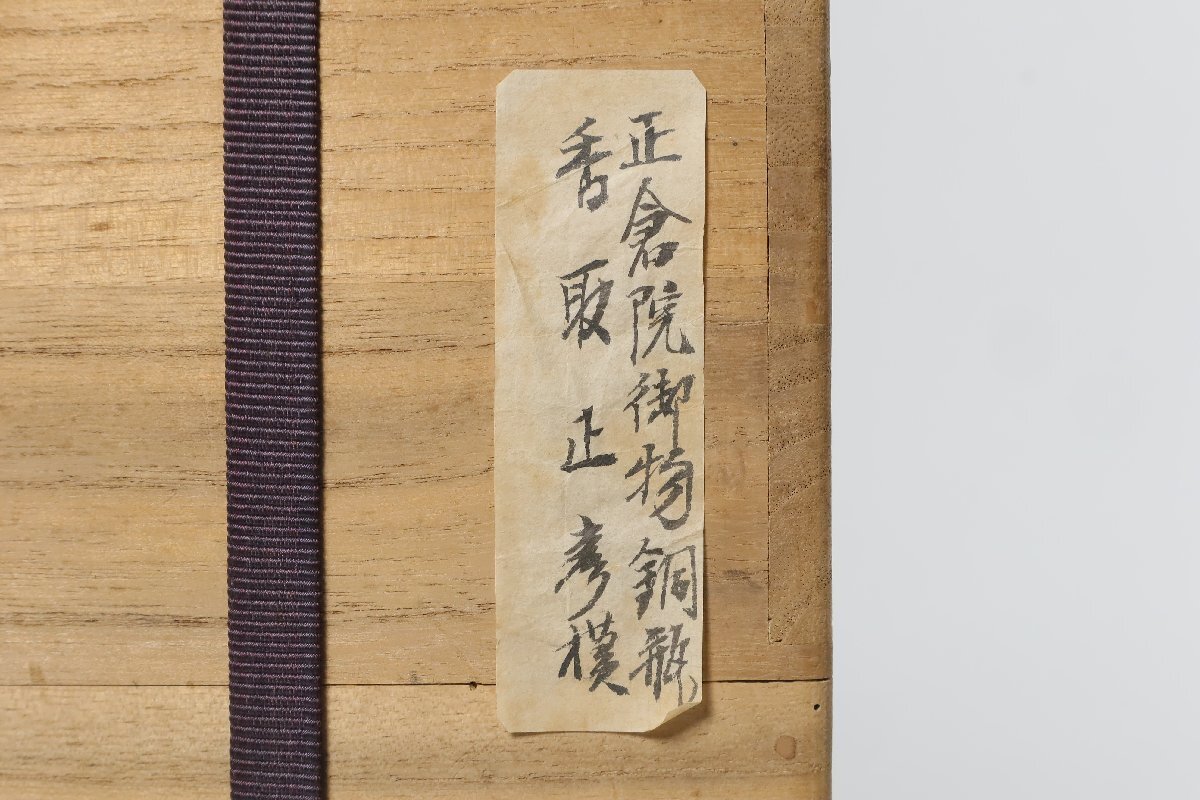 正倉院御物銅瓶
香取正彦模